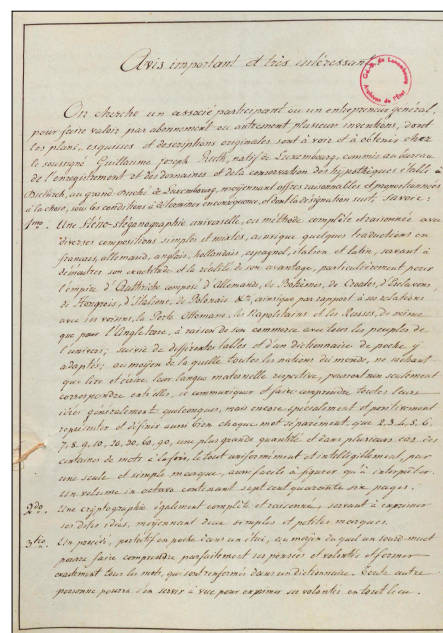 Avis important et très intéressant
Gd.-D. de Luxembourg
Archives de l'Etat
On cherche un associé participant ou un entrepreneur général,
pour faire valoir par abonnement ou autrement plusieurs inventions, dont
les plans, esquisses et descriptions originales sont à voir et à obtenir chez
le soussigné Guillaume Joseph natif de Luxembourg, commis au bureau
de l'enregistrement et des domaines et de la conservation des hypothèques établi à
Diekirch, au grand Duché de Luxembourg, moyennant offres raisonnables et proportionnées
à la chose, sous les conditions à déterminer encore, et dont la désignation suit, Savoir:
1mo. Une universelle, ou méthode complète et raisonnée avec
diverses compositions simples et mixtes, ainsi que quelques traductions en
français, allemand, anglais, hollandais, espagnol, italien et latin, servant à
démontrer son exactitude et la réalité de son avantage, particulièrement pour
l'empire d'Autriche composé d'Allemands, de Bohèmes, de Croates, d'Esclavons,
de Hongrois, d'Italiens, de Polonais &a, ainsi que par rapport à ses relations
avec ses voisins, la Porte Ottomane, les Napolitains et les Russes, de même
que pour l'Angleterre, à raison de son commerce avec tous les peuples de
l'univers; suivie de différentes tables et d'un dictionnaire de poche y
adaptés; au moyen de laquelle toutes les nations du monde, ne sachant
que lire et écrire leur langue maternelle respective, pourront non seulement
correspondre entr'elles, se communiquer et faire comprendre toutes leurs
idées généralement quelconques, mais encore spécialement et positivement
représenter et définir aussi bien chaque mot séparément, que 2, 3, 4, 5, 6,
7, 8, 9, 10, 20, 30, 60, 90, une plus grande quantité et dans plusieurs cas des
centaines de mots à la fois, le tout uniformément et intelligiblement, par
une seule et simple marque, aussi facile à figurer qu'à interpréter.
Un volume in octavo contenant sept cent quarante six pages.
2do. Une cryptographie également complète et raisonnée, servant à exprimer
ses dites idées, moyennant deux simples et petites marques.
3tio. Un procédé, portatif en poche dans un étui, au moyen du quel un sourd-muet
pourra faire comprendre parfaitement ses pensées et volontés et former
exactement tous les mots, qui sont renfermés dans un dictionnaire. Toute autre
personne pourra s'en servir à vue pour exprimer ses volontés en tout lieu.